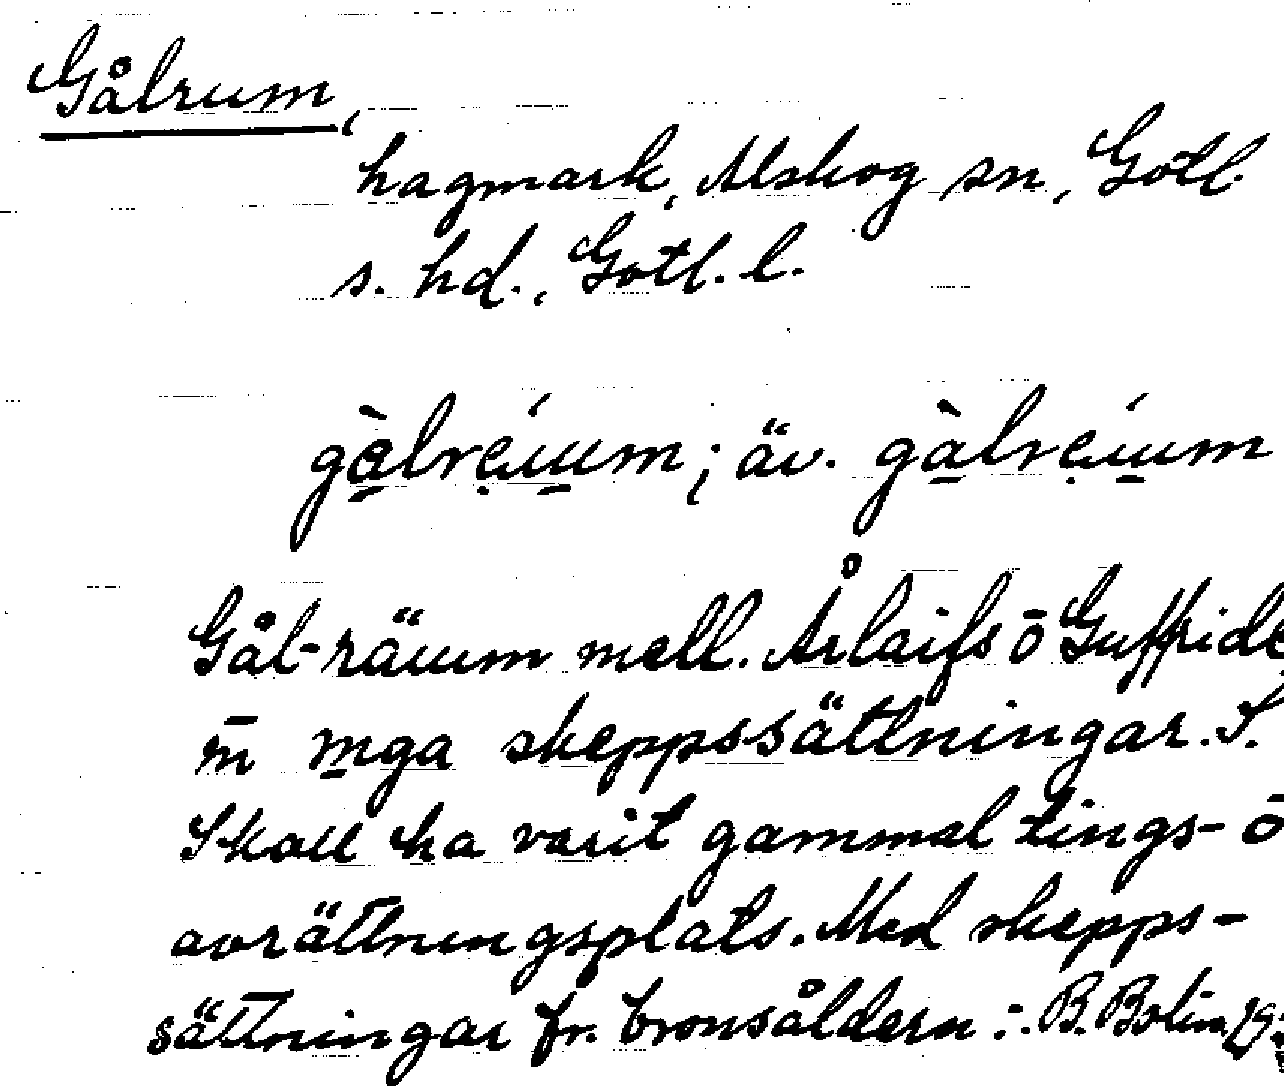 Gålrum,
hagmark, Alskog sn, Gotl.
s. hd., Gotl. l.
gàlréuum; äv. gàlréuum
Gål-räuum mell. Årlaifs ō Guffride
m̄ mga skeppssättningar. S.
Skall ha varit gammal tings- ō
avrättningsplats. Med skepps-
sättningar fr. bronsåldern :. B. Bolin